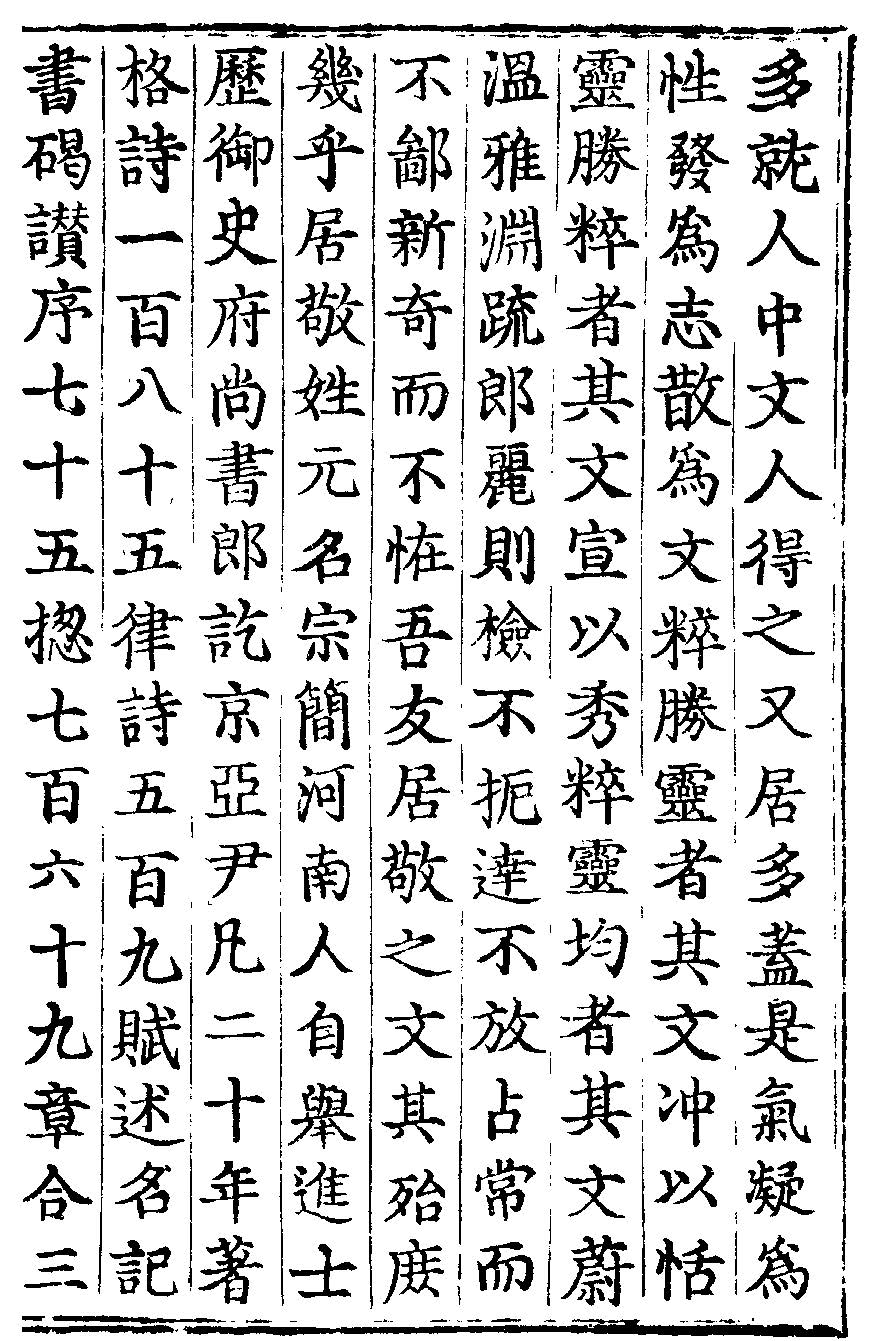 多就人中文人得之又居多蓋是氣凝爲
性發爲志散爲文粹勝靈者其文冲以恬
靈勝粹者其文宣以秀粹靈均者其文蔚
溫雅淵疏郎麗則檢不扼達不放占常而
不鄙新奇而不恠吾友居敬之文其殆庶
幾乎居敬姓元名宗簡河南人自舉進士
歷御史府尚書郎訖京亞尹凡二十年著
格詩一百八十五律詩五百九賦述名記
書碣讃序七十五揔七百六十九章合三